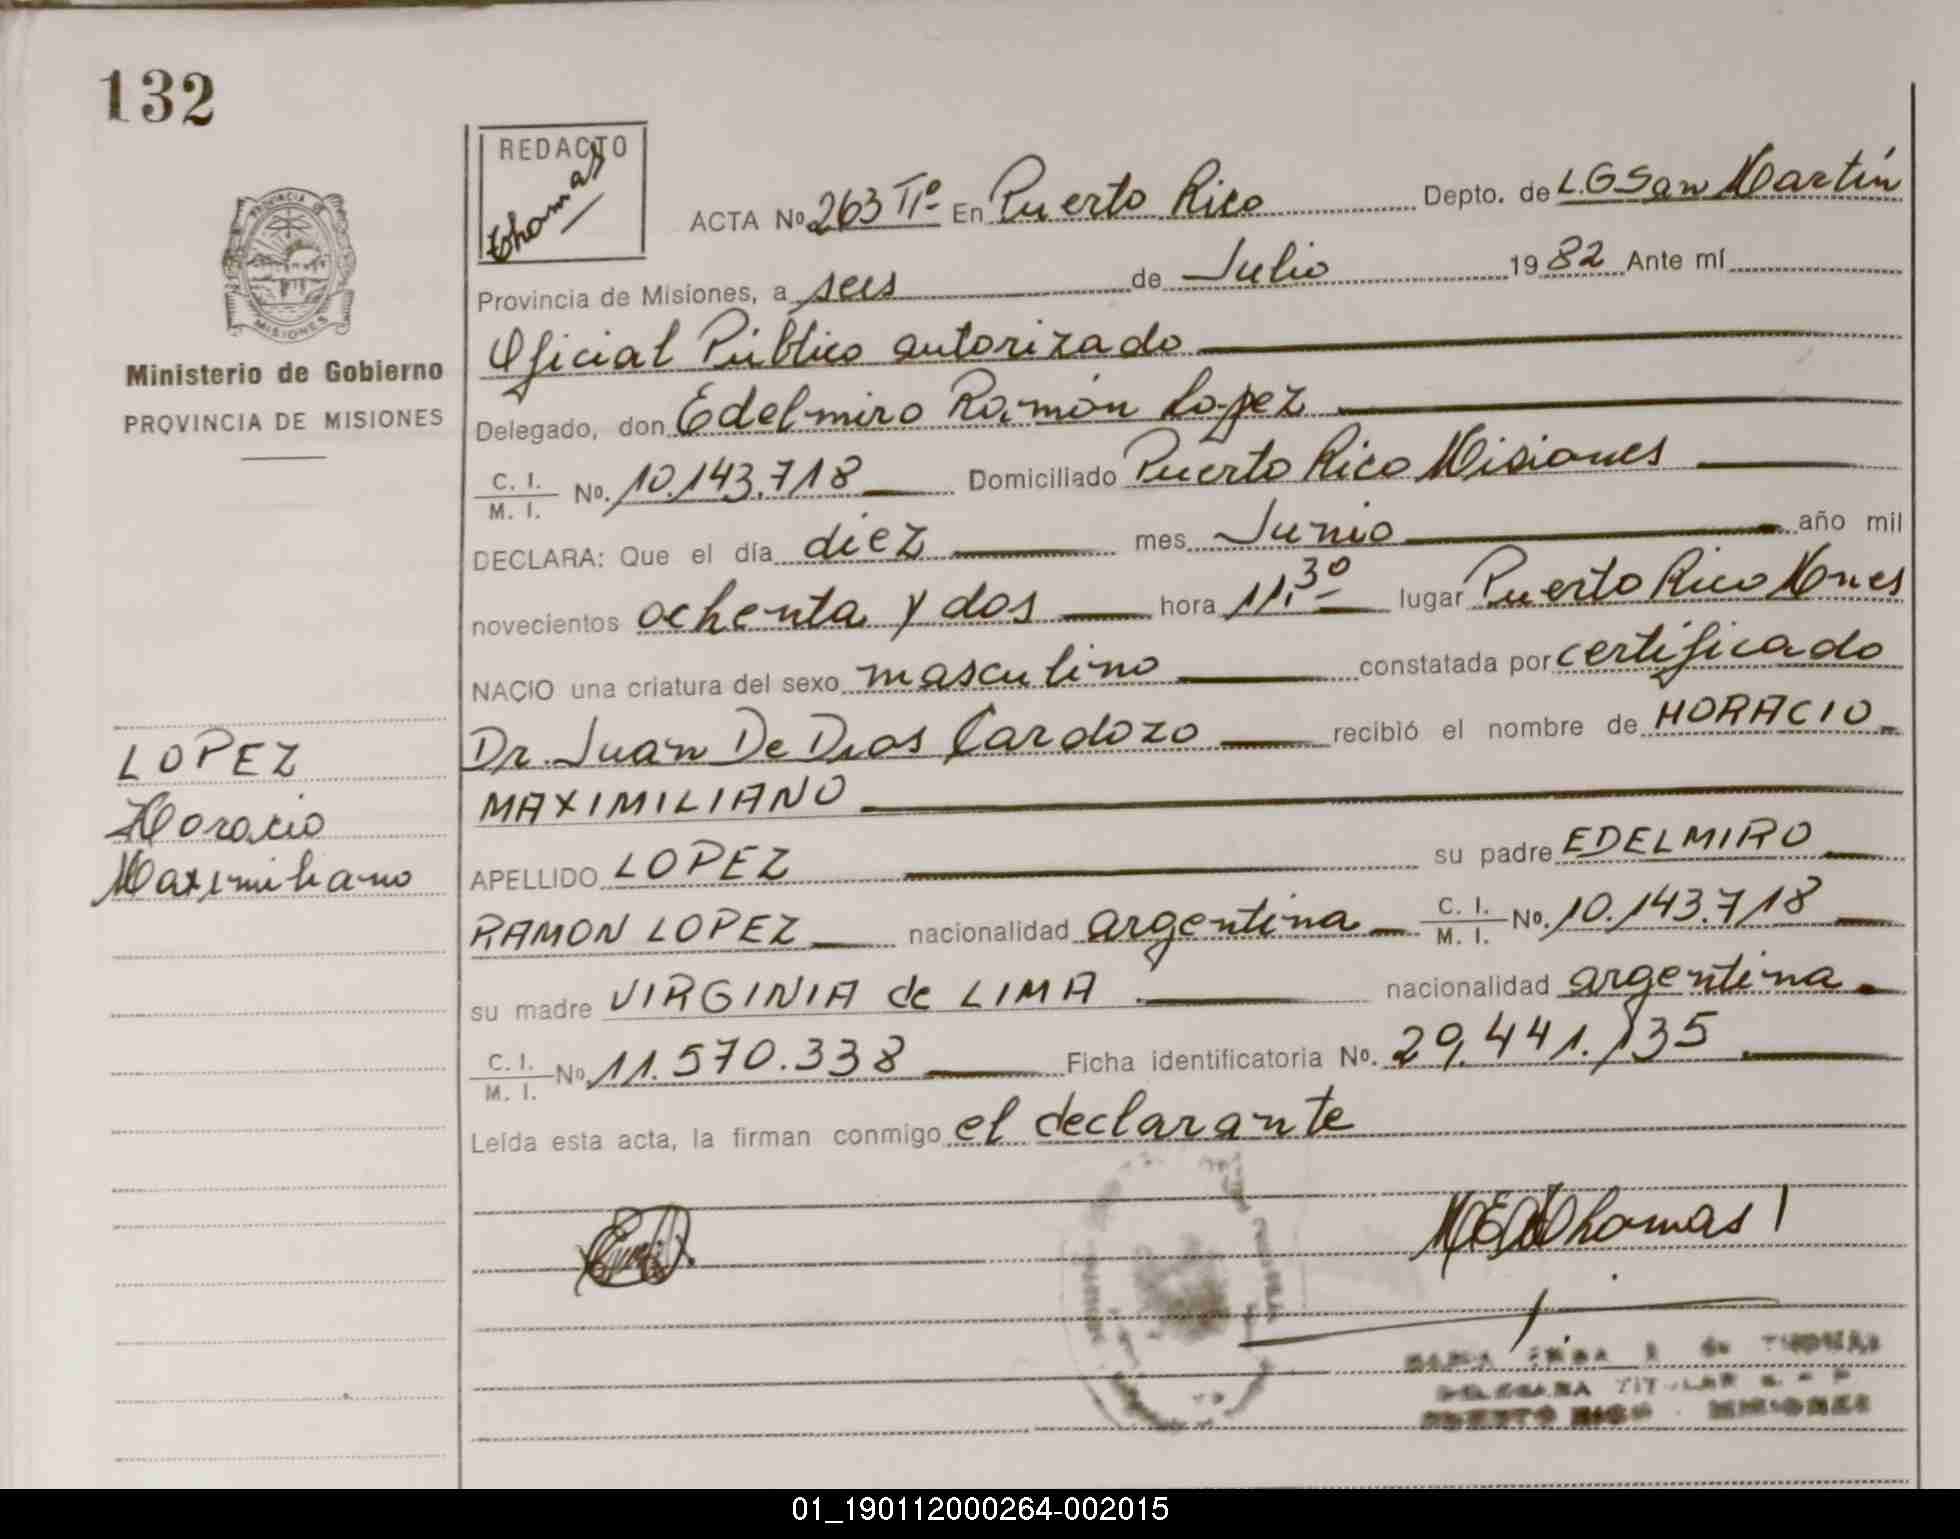 132
REDACTO
Thomas
ACTA Nº 263 Tº II En Puerto Rico Depto. de L.G San Martín
Provincia de Misiones, a seis de Julio 1982 Ante mí
Oficial Público autorizado
Ministerio de Gobierno
PROVINCIA DE MISIONES
Delegado, don Edelmiro Ramón Lopez
C. I.
M. I. No. 10.143.718 Domiciliado Puerto Rico Misiones
DECLARA: Que el día diez mes Junio año mil
novecientos ochenta y dos hora 11,30 lugar Puerto Rico Mnes
NACIO una criatura del sexo masculino constatada por certificado
Dr. Juan De Dios Cardozo recibió el nombre de HORACIO
MAXIMILIANO
LOPEZ
Horacio
Maximiliano
APELLIDO LOPEZ su padre EDELMIRO
RAMON LOPEZ nacionalidad argentina C. I.
M. I. No. 10.143.718
su madre VIRGINIA de LIMA nacionalidad argentina
C. I.
M. I. No. 11.570.338 Ficha identificatoria No. 29.441.135
Leída esta acta, la firman conmigo el declarante
Thomas
TITULAR
PUERTO RICO - MISIONES
01_190112000264-002015